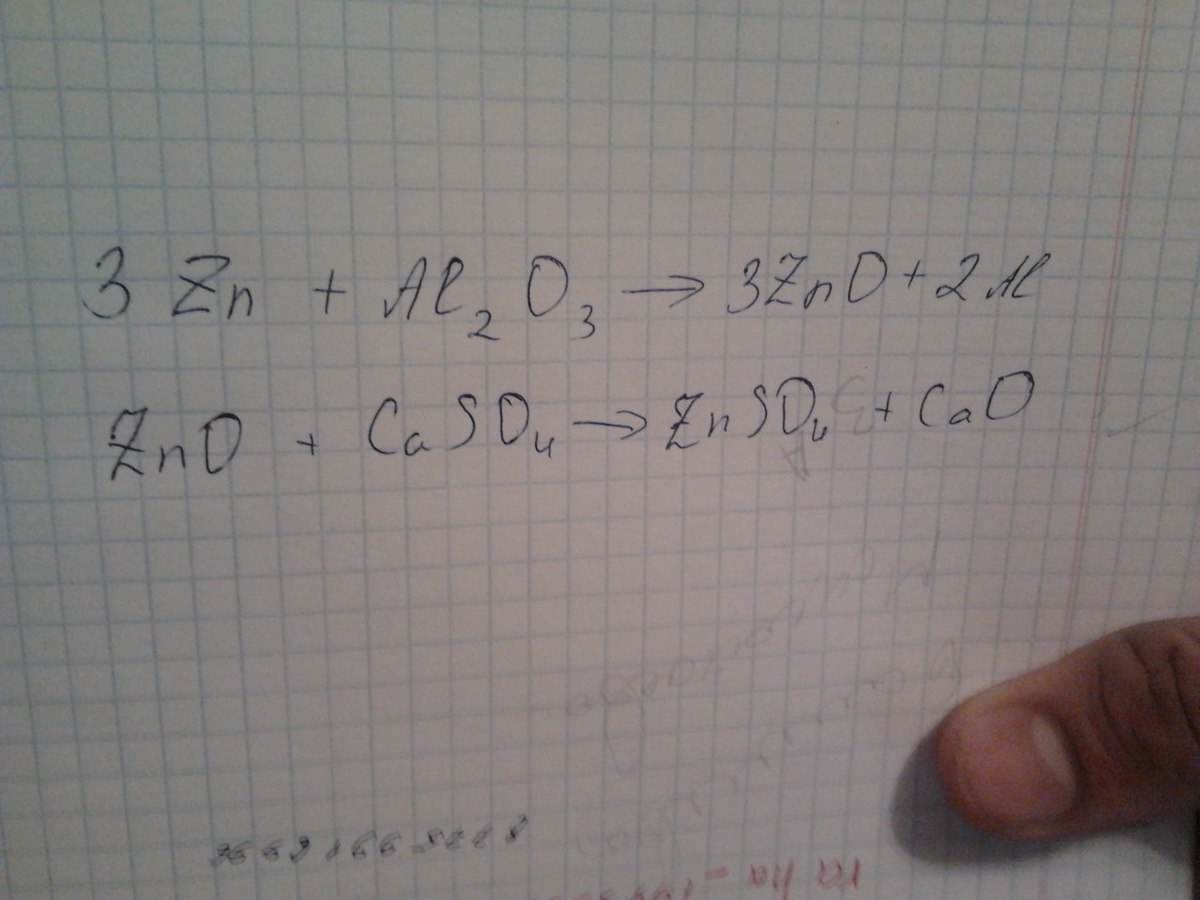 3 Zn + Al₂O₃ → 3ZnO + 2Al
ZnO + CaSO₄ → ZnSO₄ + CaO